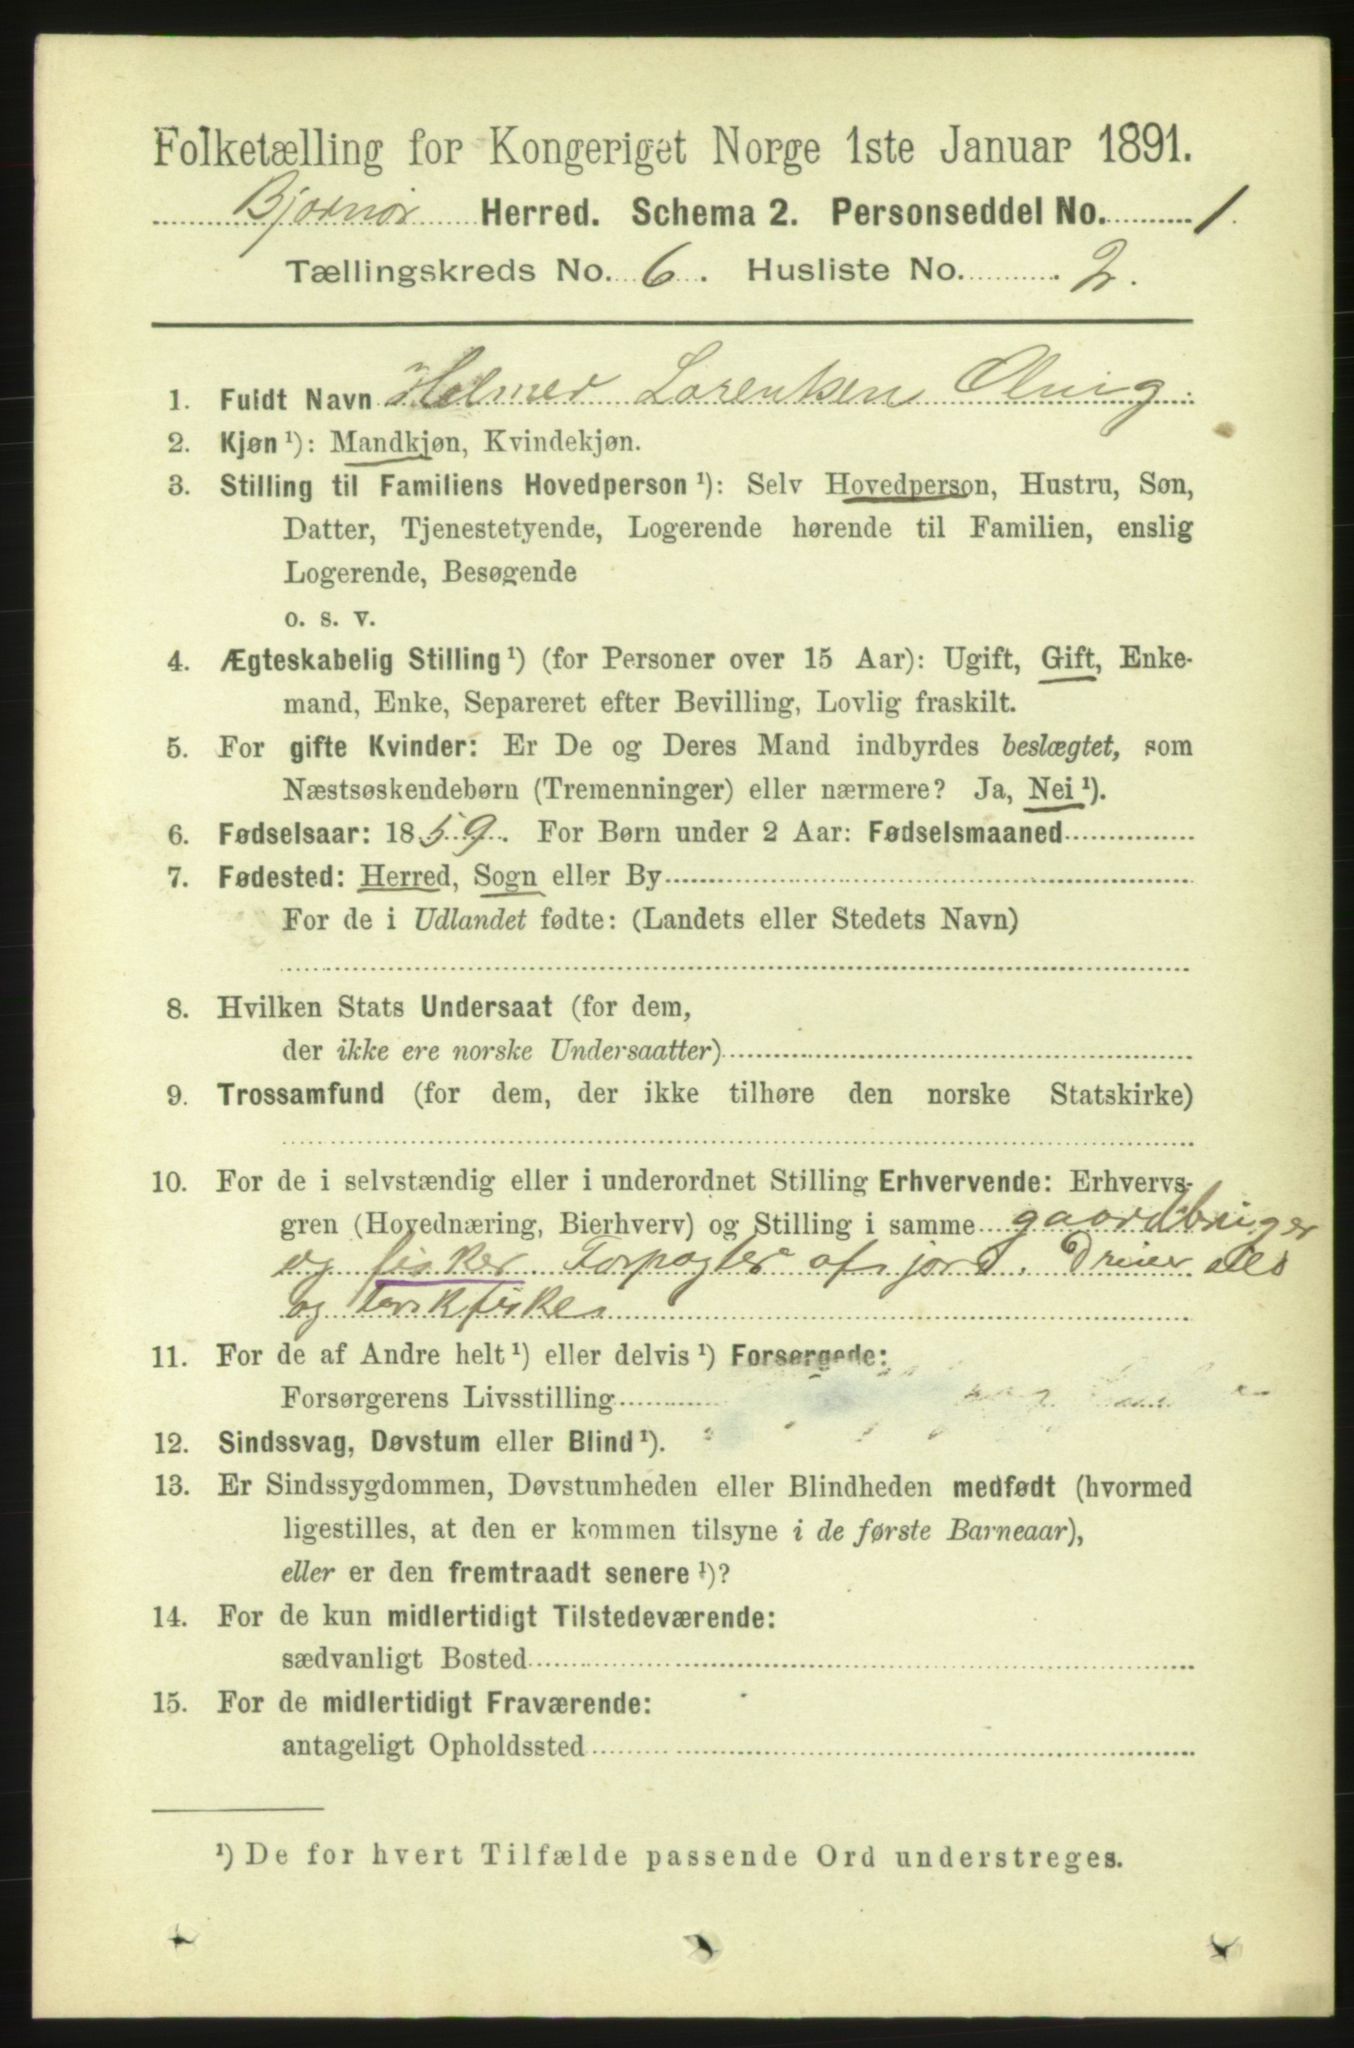 Folketælling for Kongeriget Norge 1ste Januar 1891.
Bjørnør Herred. Schema 2. Personseddel No. 1.
Tællingskreds No. 6. Husliste No. 2.
1. Fuldt Navn Helmer Lorentsen Olvig
2. Kjøn ¹): Mandkjøn, Kvindekjøn.
3. Stilling til Familiens Hovedperson ¹): Selv Hovedperson, Hustru, Søn,
Datter, Tjenestetyende, Logerende hørende til Familien, enslig
Logerende, Besøgende
o. s. v.
4. Ægteskabelig Stilling ¹) (for Personer over 15 Aar): Ugift, Gift, Enke-
mand, Enke, Separeret efter Bevilling, Lovlig fraskilt.
5. For gifte Kvinder: Er De og Deres Mand indbyrdes beslægtet, som
Næstsøskendebørn (Tremenninger) eller nærmere? Ja, Nei ¹).
6. Fødselsaar: 1859. For Børn under 2 Aar: Fødselsmaaned
7. Fødested: Herred, Sogn eller By
For de i Udlandet fødte: (Landets eller Stedets Navn)
8. Hvilken Stats Undersaat (for dem,
der ikke ere norske Undersaatter)
9. Trossamfund (for dem, der ikke tilhøre den norske Statskirke)
10. For de i selvstændig eller i underordnet Stilling Erhvervende: Erhvervs-
gren (Hovednæring, Bierhverv) og Stilling i samme gaardbruger
og fisker. Forpagter af jord. Driver sild
og torskfiske
11. For de af Andre helt ¹) eller delvis ¹) Forsørgede:
Forsørgerens Livsstilling
12. Sindssvag, Døvstum eller Blind ¹).
13. Er Sindssygdommen, Døvstumheden eller Blindheden medfødt (hvormed
ligestilles, at den er kommen tilsyne i de første Barneaar),
eller er den fremtraadt senere ¹)?
14. For de kun midlertidigt Tilstedeværende:
sædvanligt Bosted
15. For de midlertidigt Fraværende:
antageligt Opholdssted
¹) De for hvert Tilfælde passende Ord understreges.